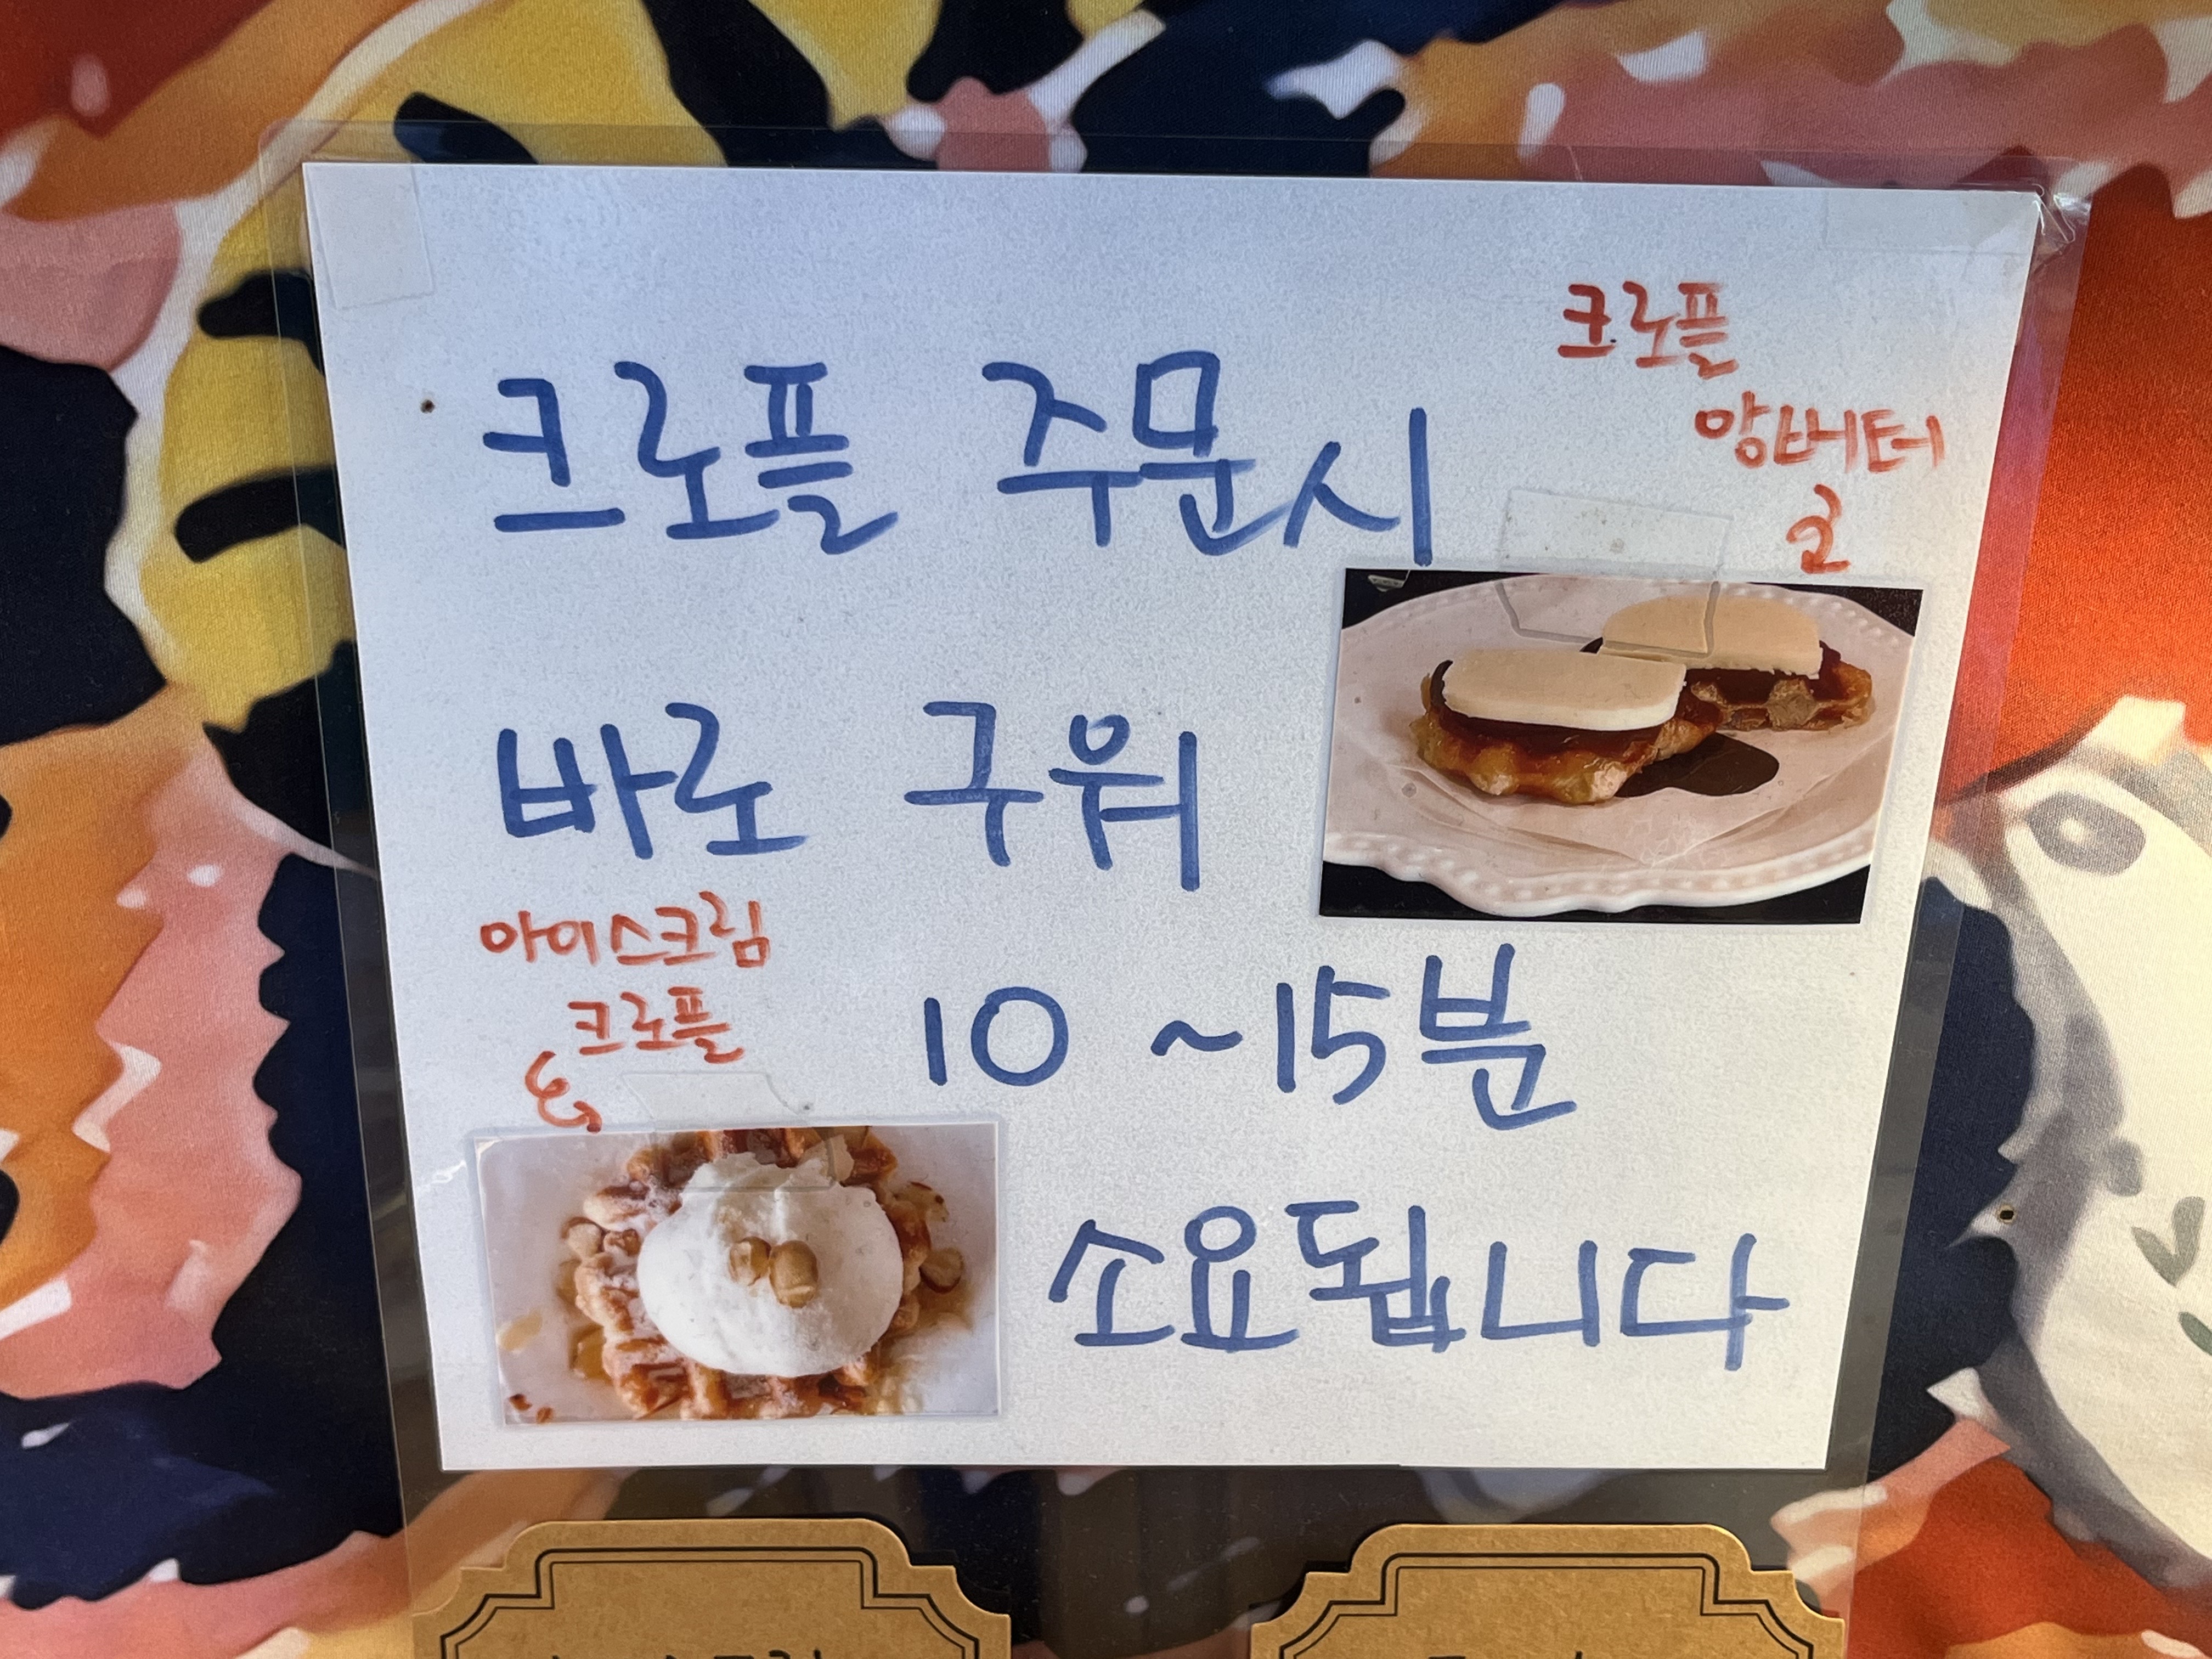 크로플
앙버터
크로플 주문시
바로 구워
아이스크림
크로플
10 ~15분
소요됩니다